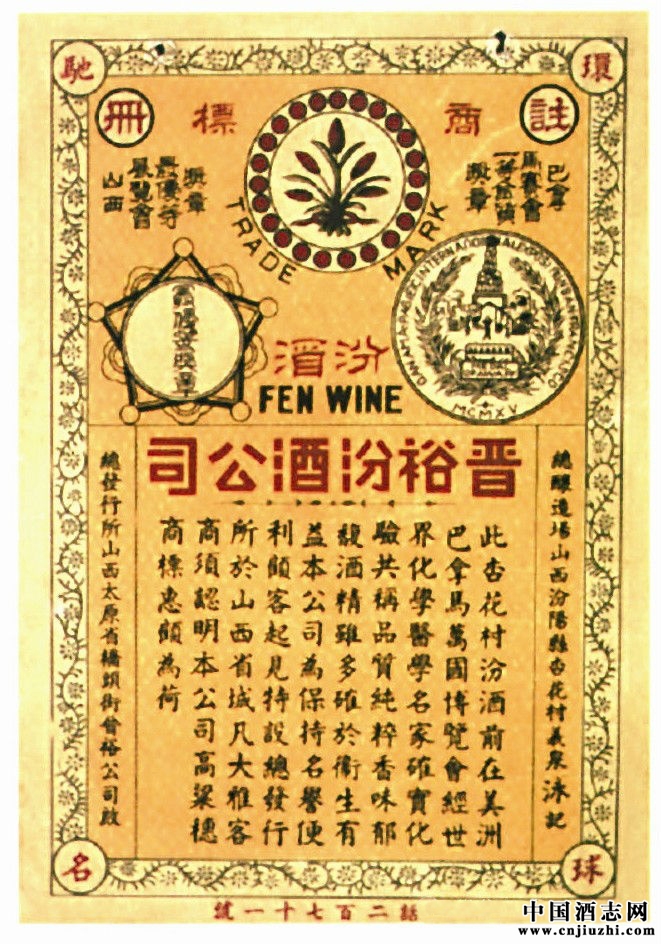 環球馳名
註冊
商標
TRADE MARK
巴拿
馬賽會
一等金質
獎章
獎章
最優等
展覽會
山西
MCMXV
汾酒
FEN WINE
晉裕汾酒公司
總釀造場山西汾陽縣杏花村義泉泳記
此杏花村汾酒前在美洲
巴拿馬萬國博覽會經世
界化學醫學名家確實化
驗共稱品質純粹香味郁
馥酒精雖多確於衛生有
益本公司為保持名譽便
利顧客起見特設總發行
所於山西省城凡大雅客
商須認明本公司高粱穗
商標惠顧為荷
總發行所山西太原省橋頭街晉裕公司啟
話二百七十一號
中国酒志网
www.cnjiuzhi.com